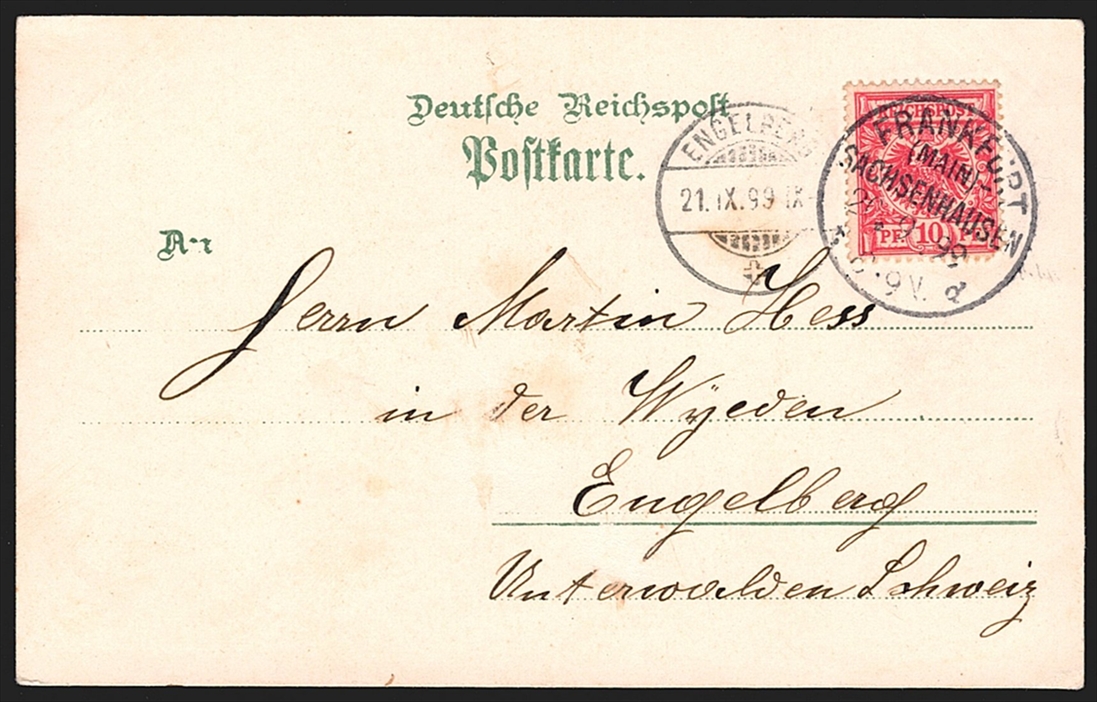 Deutsche Reichspost
Postkarte.
An
ENGELBERG
21. IX. 99 IX
REICHSPOST
PF 10 PF
FRANKFURT
(MAIN)-
SACHSENHAUSEN
9 99
8-9V. d
Herrn Martin Hess
in der Wyeden
Engelberg
Unterwalden Schweiz